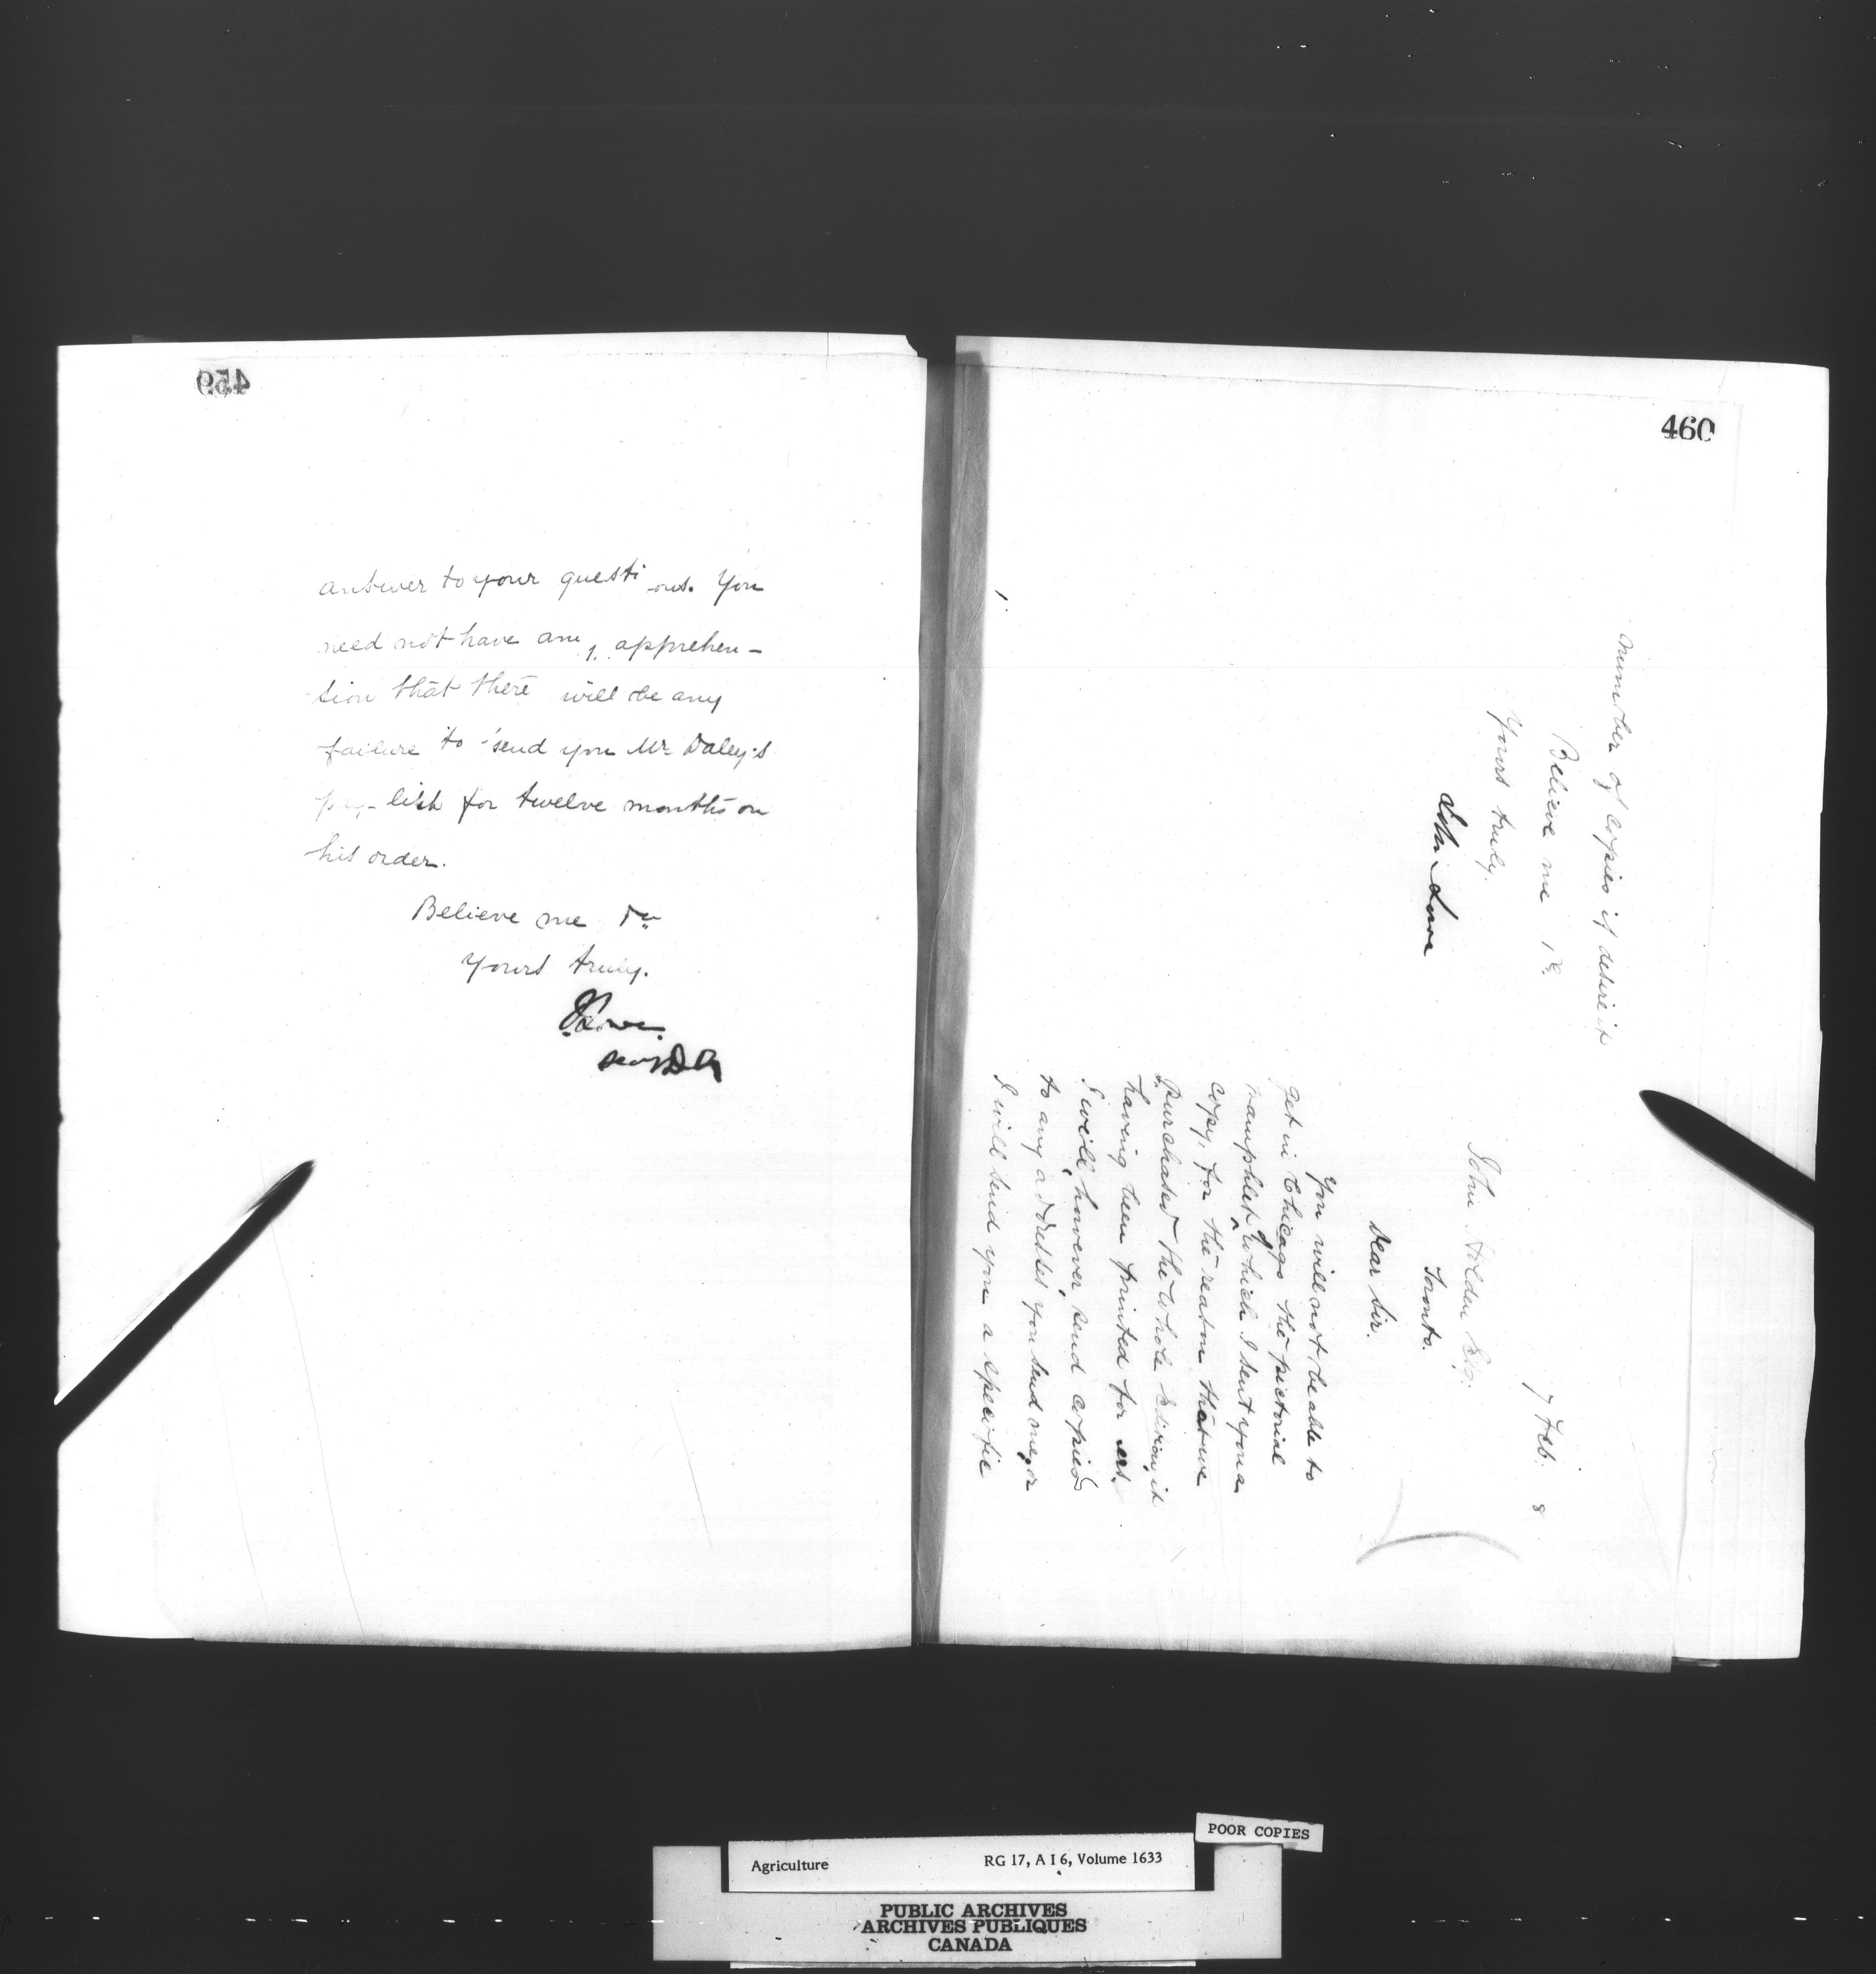 459
answer to your questions. You
need not have any apprehen-
sion that there will be any
failure to send you Mr Daley's
pay-list for twelve months on
his order.
Believe me Dr
Yours truly.
J Lowe.
Secy D A
460
7 Feb. 8
John Holden Esq.
Toronto.
Dear Sir.
You will not be able to
get in Chicago the pictorial
pamphlet, which I sent you a
copy, for the reason that we
purchased the whole Edition, it
having been printed for us.
I will, however, send copies
to any addresses you send me, or
I will send you a specific
number of copies if desire it
Believe me &c.
Yours truly.
John Lowe
Agriculture RG 17, A I 6, Volume 1633
POOR COPIES
PUBLIC ARCHIVES
ARCHIVES PUBLIQUES
CANADA